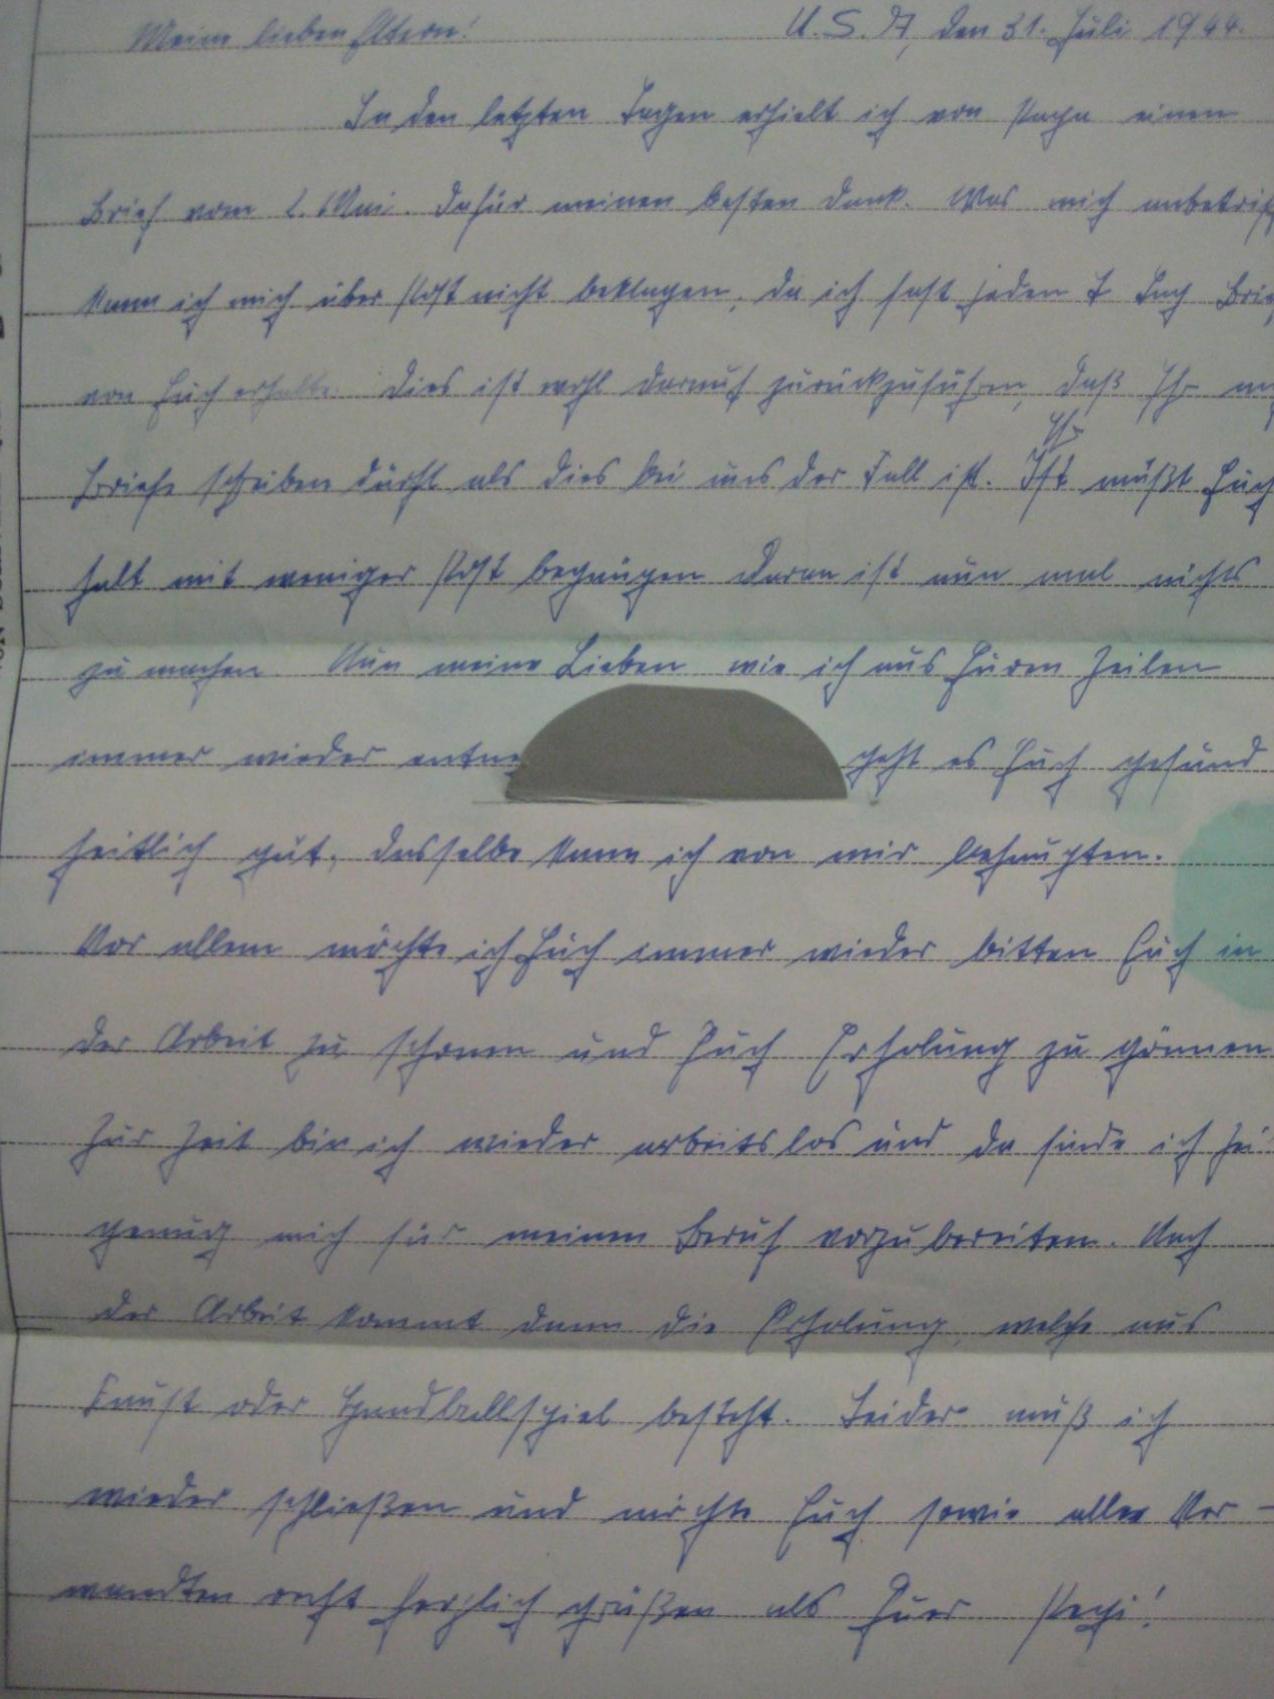 Meine lieben Eltern! U. S. A, den 31. Juli 1944.
In den letzten Tagen erhielt ich von Papa einen
Brief vom 2. Mai. Dafür meinen besten Dank. Was mich anbetrif
kann ich mich über Post nicht beklagen, da ich fast jeden T Tag Brie
von Euch erhalte. Dies ist wohl darauf zurückzuführen, daß Ihr
Briefe schreiben dürft als dies bei uns der Fall ist. Ihr müßt Euch
halt mit weniger Post begnügen daran ist nun mal nichts
zu machen. Nun meine Lieben wie ich aus Euren Zeilen
immer wieder entne geht es Euch gesund
heitlich gut, dasselbe kann ich von mir behaupten.
Vor allem möchte ich Euch immer wieder bitten Euch in
der Arbeit zu schonen und Euch Erholung zu gönnen
Zur Zeit bin ich wieder arbeitslos und da finde ich Zei
genug mich für meinen Beruf vorzubereiten. Nach
der Arbeit kommt dann die Erholung, welche aus
Faust oder Handballspiel besteht. Leider muß ich
wieder schließen und möchte Euch sowie allen Ver-
wandten recht herzlich grüßen als Euer Pepi!